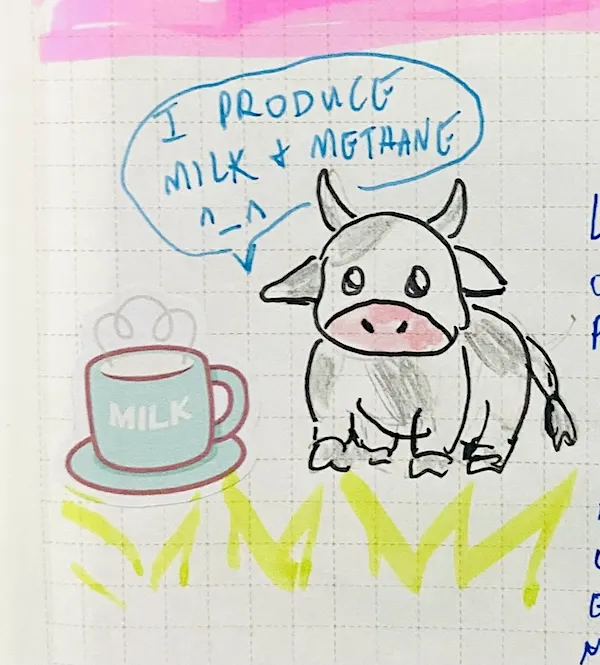 I PRODUCE
MILK & METHANE
^_^
MILK